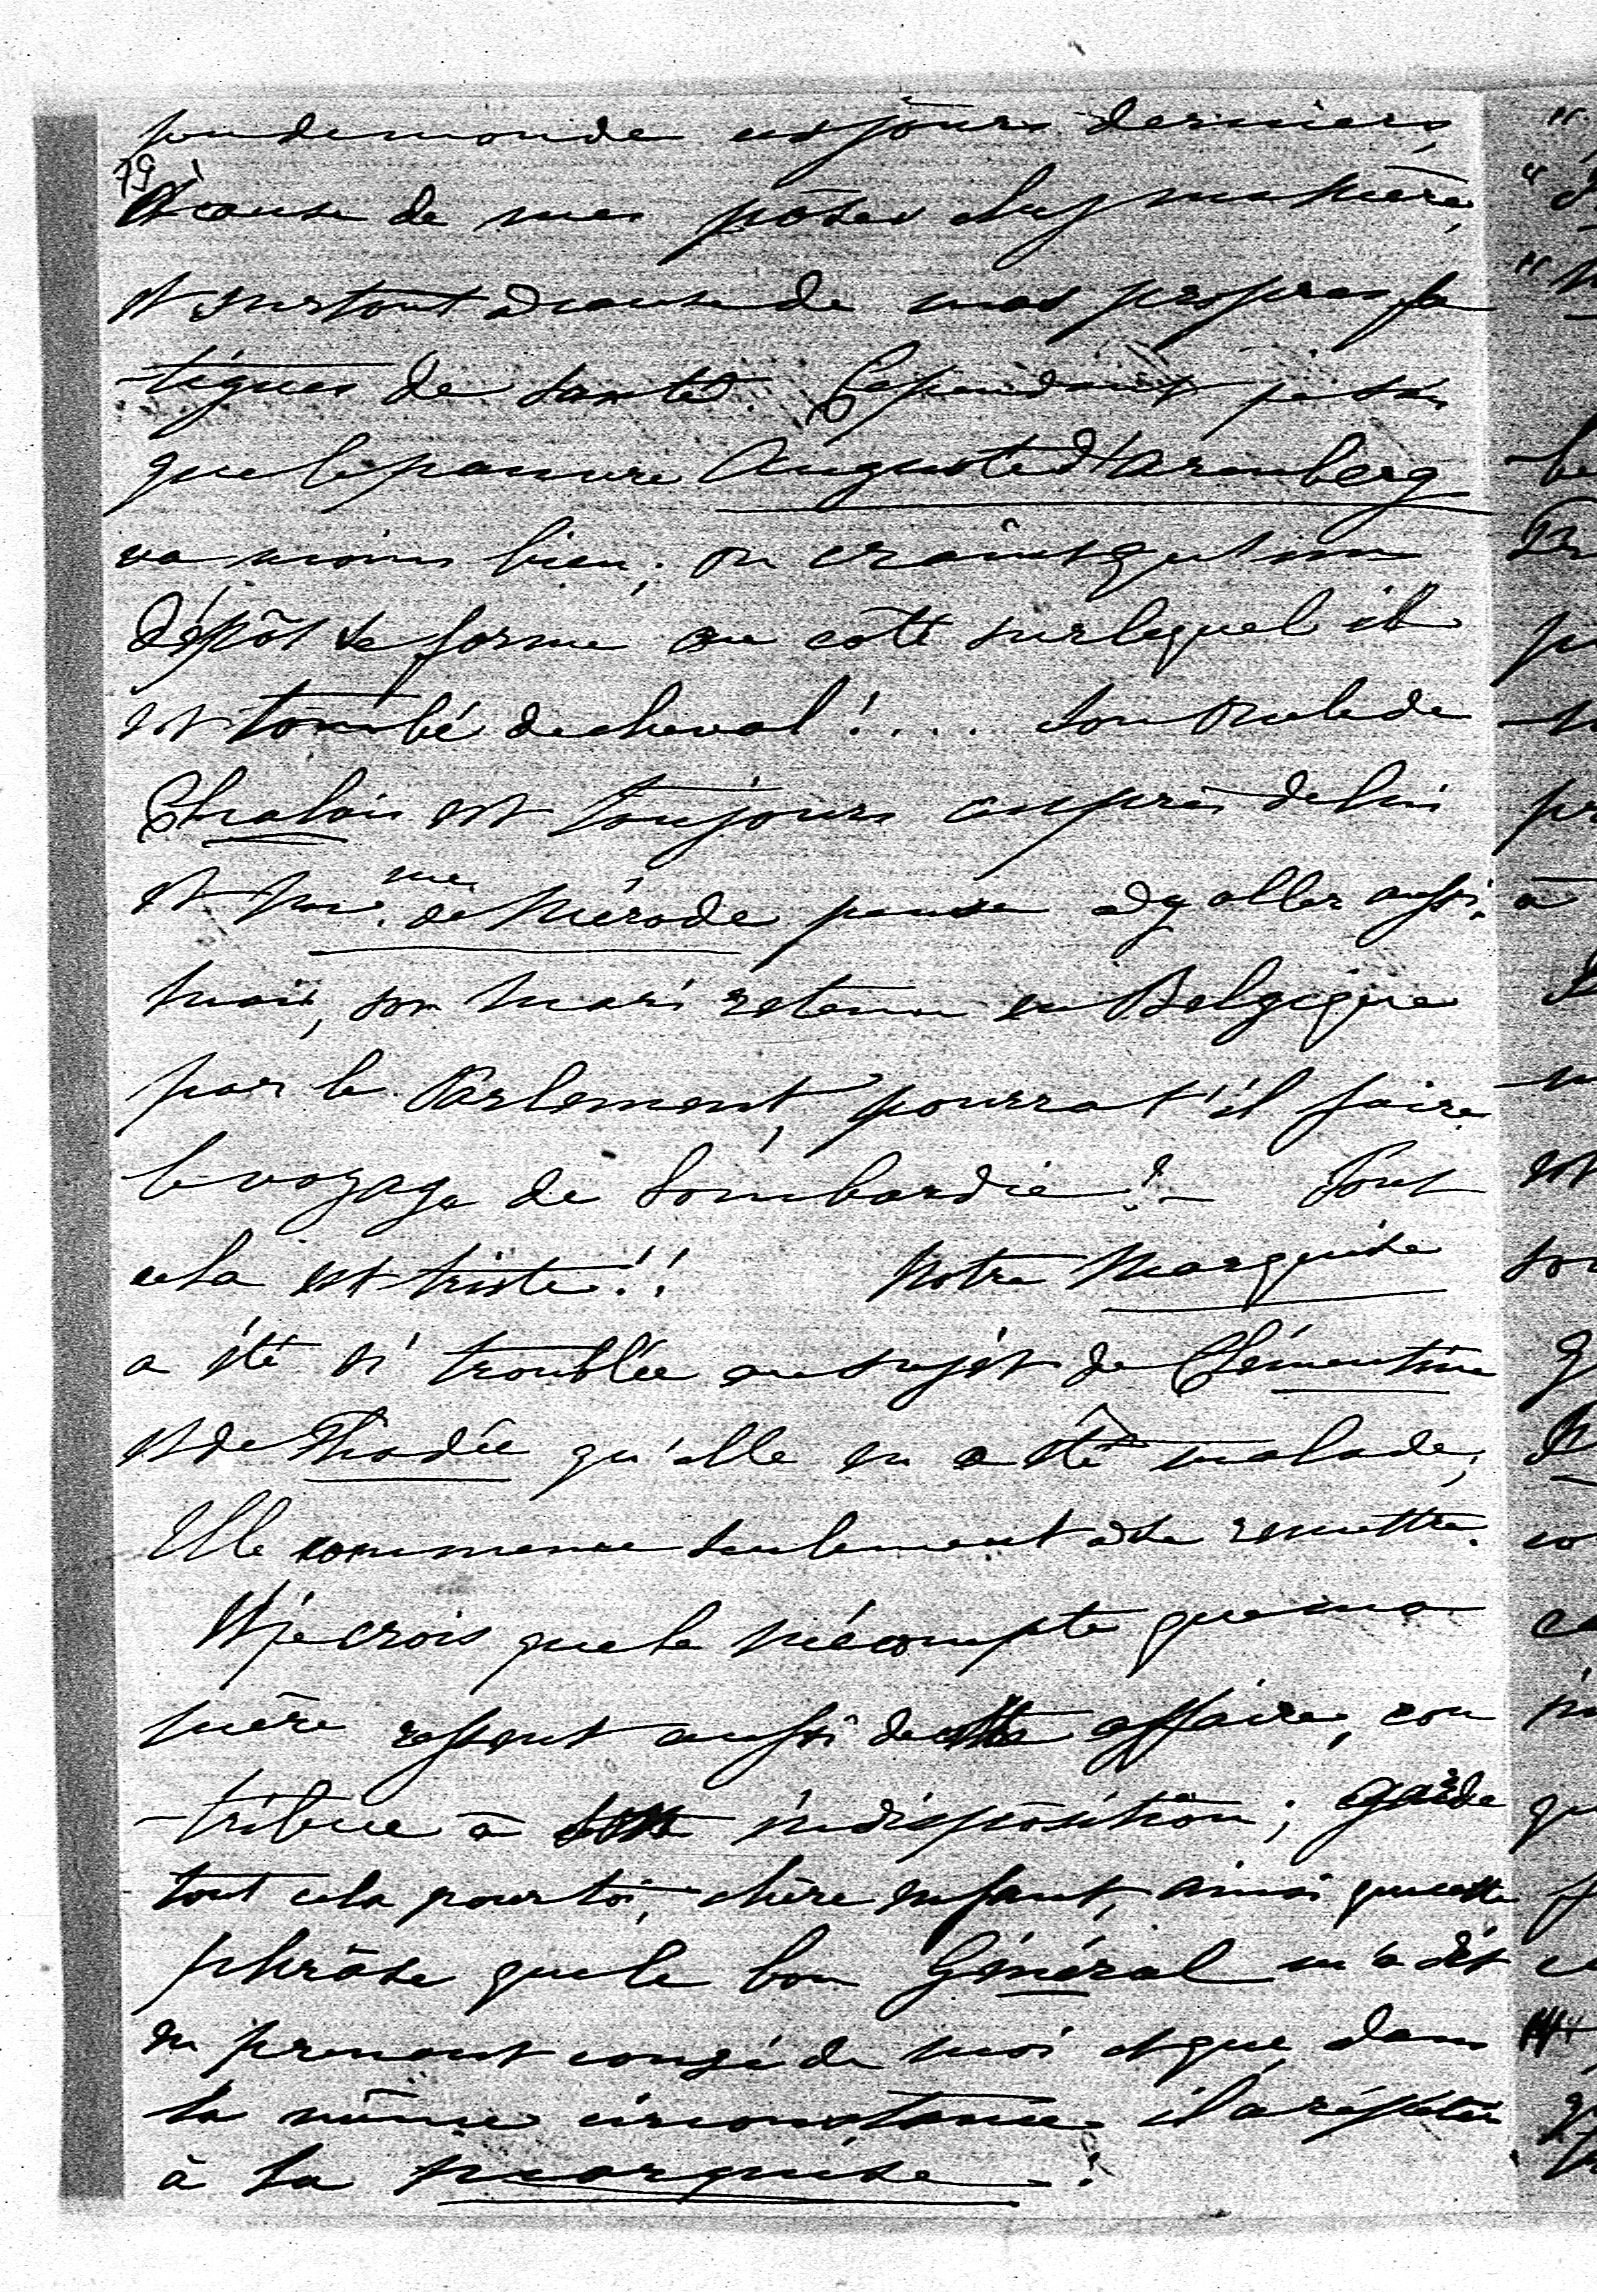 peu de monde ces jours derniers,
79
à cause de mes pôses chez ma mère,
et surtout à cause de mes propres fa
-tigues de santé. Cependant je sais
que le pauvre Auguste d'Arenberg
va moins bien; on craint qu'un
dépôt se forme au côté sur lequel il
est tombé de cheval!.... Son oncle de
Chalais est toujours auprès de lui
et Mme. de Mérode pense à y aller aussi.
Mais, son mari retenu en Belgique
par le Parlement, pourrat'il faire
le voyage de Lombardie?- Tout
cela est triste!! Notre Marquise
a été si troublée au sujet de Clémentine
et de Thadée qu'elle en a été malade;
Elle commence seulement à se remettre.
Et je crois que le mécompte que ma
mère ressent aussi de cette affaire, con
-tribue à son indisposition; garde
tout cela pour toi, chère enfant, ainsi que cette
phrâse que le bon Général m'a dit
en prenant congé de moi et que, dans
la même circonstance il a répétée
à la Marquise: